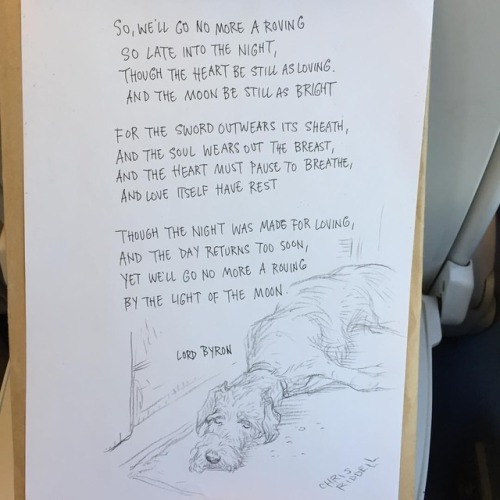 SO, WE'LL GO NO MORE A ROVING
SO LATE INTO THE NIGHT,
THOUGH THE HEART BE STILL AS LOVING.
AND THE MOON BE STILL AS BRIGHT
FOR THE SWORD OUTWEARS ITS SHEATH,
AND THE SOUL WEARS OUT THE BREAST,
AND THE HEART MUST PAUSE TO BREATHE,
AND LOVE ITSELF HAVE REST
THOUGH THE NIGHT WAS MADE FOR LOVING,
AND THE DAY RETURNS TOO SOON,
YET WE'LL GO NO MORE A ROVING
BY THE LIGHT OF THE MOON.
LORD BYRON
CHRIS
RIDDELL